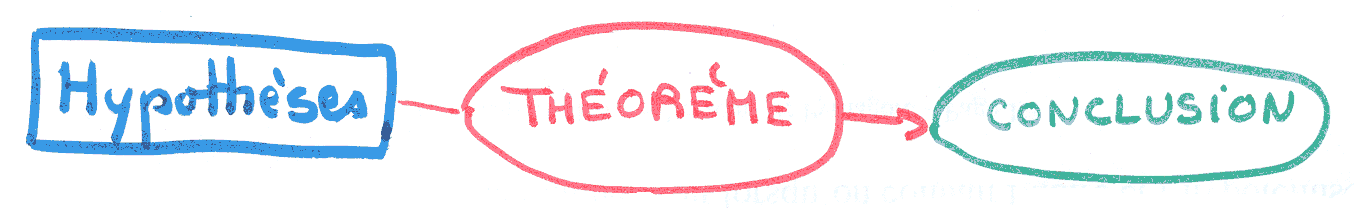 Hypothèses
THÉORÈME
CONCLUSION